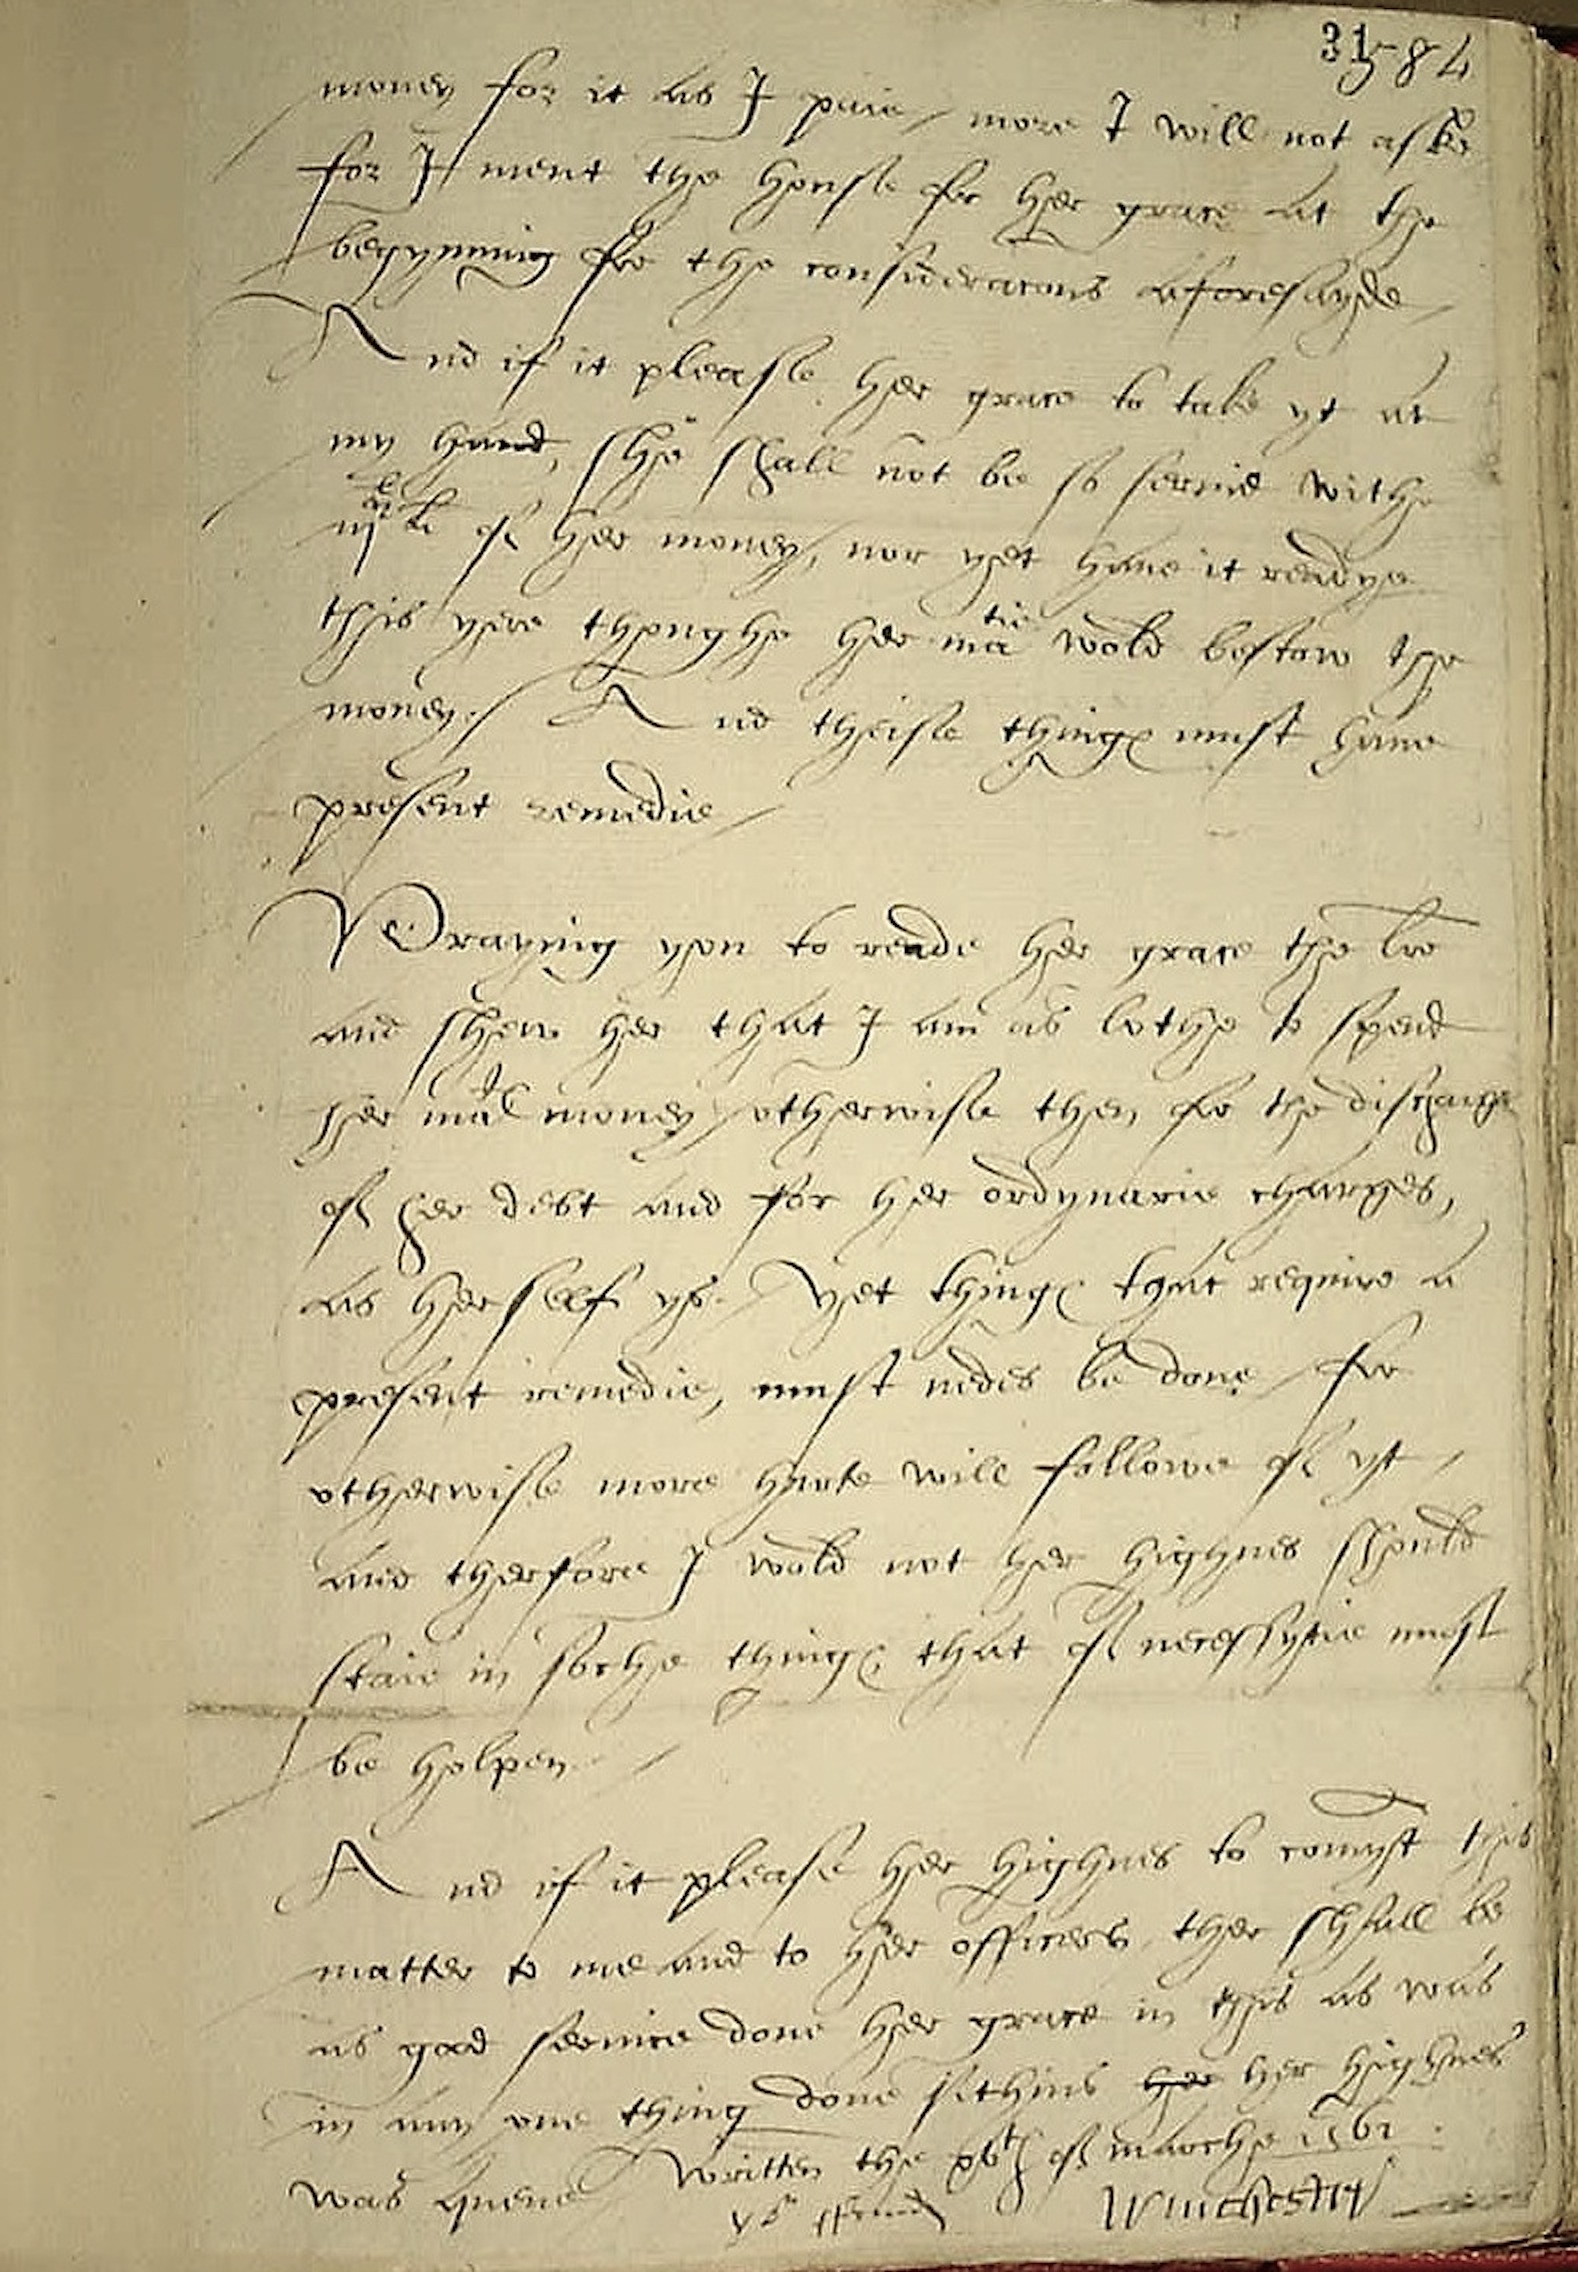 31 584
money for it as I paie / more I will not aske
for I ment the housse for her grace at the
begynning for the consideracons aforesayde /
And if it please her grace to take yt at
my hand, she shall not be so served withe
of her money, nor yet have it readye
this yere thoughe her matie wold bestow the
money ./ And theise things must have
present remedie /
Praying you to reade her grace the lre
and shew her that I am as lothe to spend
her mats money otherwise then for the discharge
of her debt and for her ordynarie charges,
as herself ys. Yet things that require a
present remedie, must nedes be done / for
otherwise more hurte will followe of yt /
and therfore I wold not her highnes should
staie in soche things that of necessytie must
be holpen /
And if it please her highnes to comyt this
matter to me and to her officers, ther shall be
as good service done her grace in this as was
in any one thing done sithens her her highnes
was quene / Written the xvth of marche 1561
yor ffrend Winchester